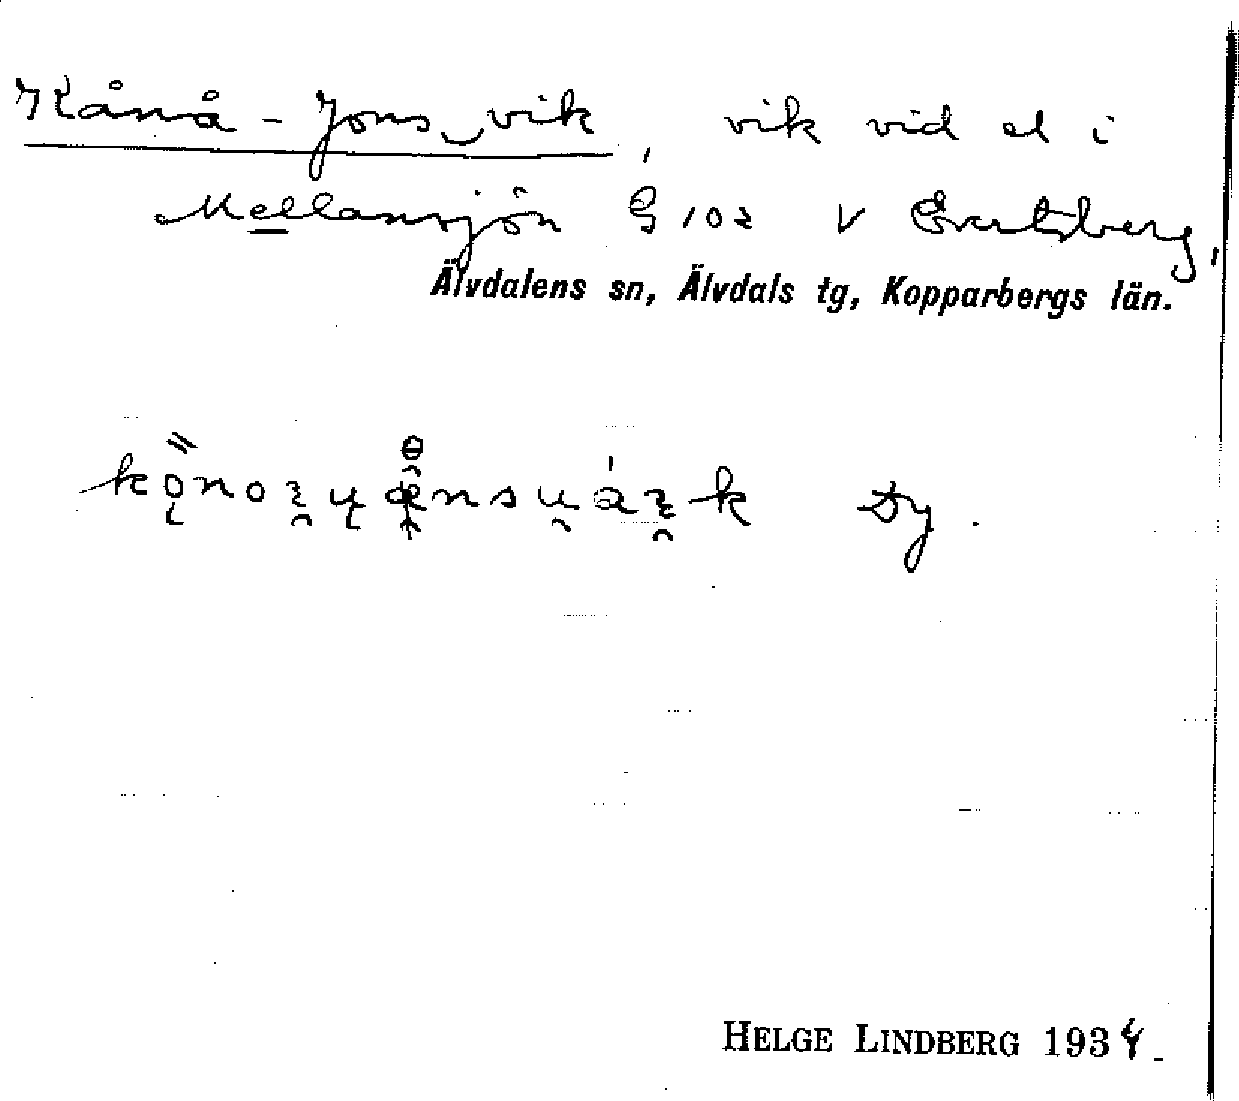 Kånå-Jons vik, vik vid el i
Mellansjön G 102 V Evertsberg,
Älvdalens sn, Älvdals tg, Kopparbergs län.
Dy.
HELGE LINDBERG 1934